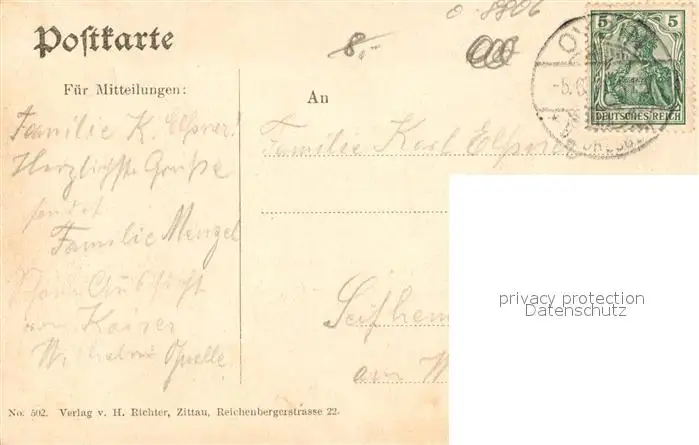 o-8806
Postkarte
8,-
5 5
DEUTSCHES REICH
Für Mitteilungen:
An
Familie K. Elsner!
Herzlichste Grüße
sendet
Familie Menzel
von
Kaiser
Wilhelm Quelle.
Familie Karl Elsner
Seifhen
am W
privacy protection
Datenschutz
No. 502. Verlag v. H. Richter, Zittau, Reichenbergerstrasse 22.